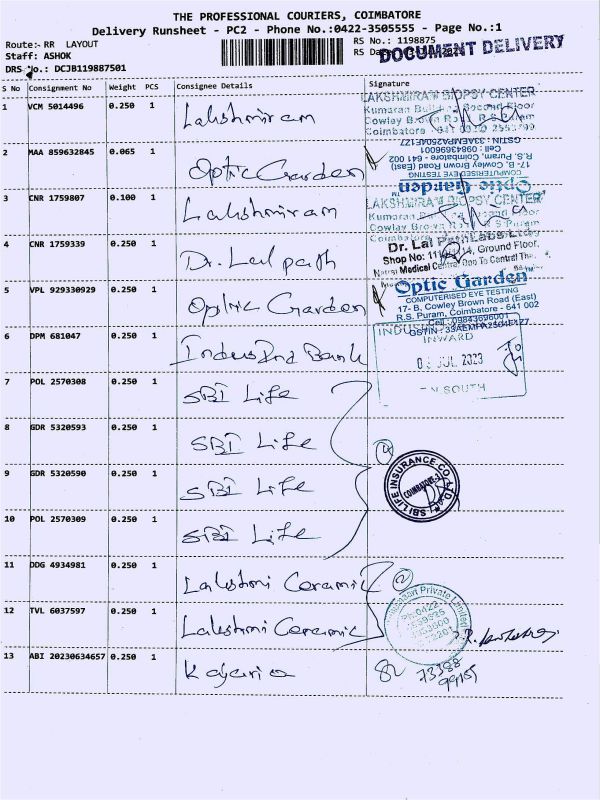 THE PROFESSIONAL COURIERS, COIMBATORE
Delivery Runsheet - PC2 - Phone No.:0422-3505555 - Page No.:1
Route:- RR LAYOUT
Staff: ASHOK
DRS No.: DCJB119887501
RS No.: 1198875
RS Date:
DOCUMENT DELIVERY
S No Consignment No Weight PCS Consignee Details Signature
1 VCM 5014496 0.250 1 Lakshmiram
LAKSHMIRAM BIOPSY CENTER
Kumaran Building Second Floor
Cowley Brown Road R S Puram
Coimbatore
2 MAA 859632845 0.065 1 Optic Garden
Optic Garden
COMPUTERISED EYE TESTING
17- B, Cowley Brown Road (East)
R.S. Puram, Coimbatore - 641 002
Cell : 09843696001
GSTIN : 33AEMPA2504E1Z7
3 CNR 1759807 0.100 1 Lakshmiram
LAKSHMIRAM BIOPSY CENTER
Kumaran Building Second Floor
Cowley Brown Road R S Puram
Coimbatore
4 CNR 1759339 0.250 1 Dr. Lal path
Dr. Lal PathLabs Ltd
Shop No: Ground Floor,
Medical Centre, Opp To Central The
5 VPL 929330929 0.250 1 Optic Garden
Optic Garden
COMPUTERISED EYE TESTING
17- B, Cowley Brown Road (East)
R.S. Puram, Coimbatore - 641 002
Cell : 09843696001
GSTIN : 33AEMPA2504E1Z7
6 DPM 681047 0.250 1 IndusInd Bank
INWARD
JUL 2023
SOUTH
7 POL 2570308 0.250 1 SBI Life
8 GDR 5320593 0.250 1 SBI Life
4
9 GDR 5320590 0.250 1 SBI Life
SBI LIFE INSURANCE CO. LTD.
COIMBATORE-2
10 POL 2570309 0.250 1 SBI Life
11 DDG 4934981 0.250 1 Lakshmi Ceramic
2
12 TVL 6037597 0.250 1 Lakshmi Ceramic
Private Limited
13 ABI 20230634657 0.250 1 Kajaria